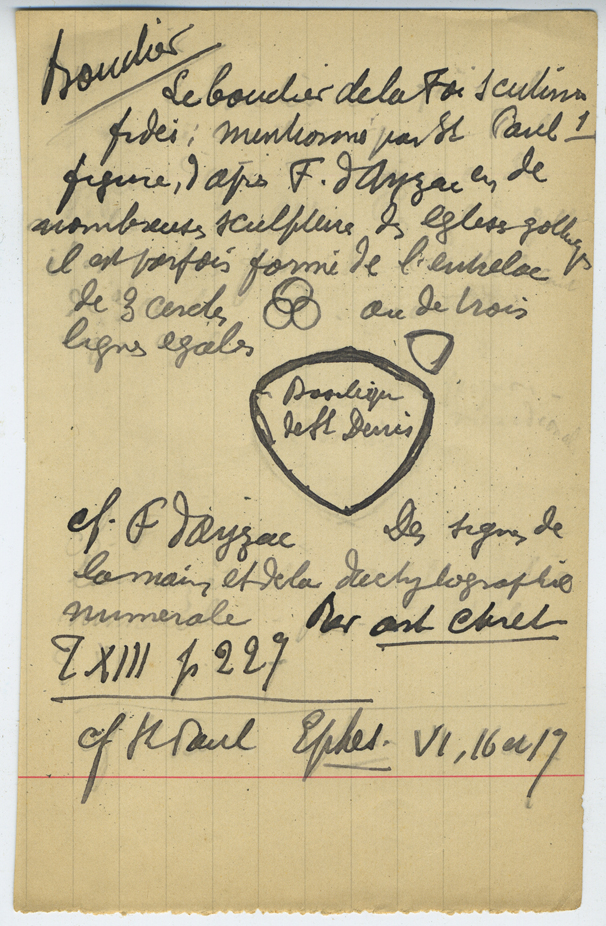 Bouclier
Le bouclier de la Foi scutum
fidei, mentionné par St Paul 1
figure, d'après F. d'Ayzac en de
nombreuses sculptures des églises gothiques
il est parfois formé de l'entrelac
de 3 cercles ou de trois
lignes égales
Basilique
de St Denis
cf. F d'Ayzac Des signes de
la main et de la dactylographie
numerale Rev art chret
T XIII p 227
cf St Paul Ephes. VI, 16 et 17